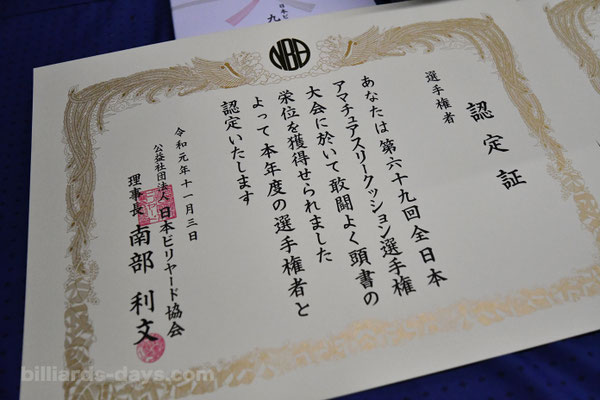 日本ビ
九
NBA
認定証
選手権者
あなたは第六十九回全日本
アマチュアスリークッション選手権
大会に於いて敢闘よく頭書の
栄位を獲得せられました
よって本年度の選手権者と
認定いたします
令和元年十一月三日
公益社団法人日本ビリヤード協会
理事長 南部利文
billiards-days.com